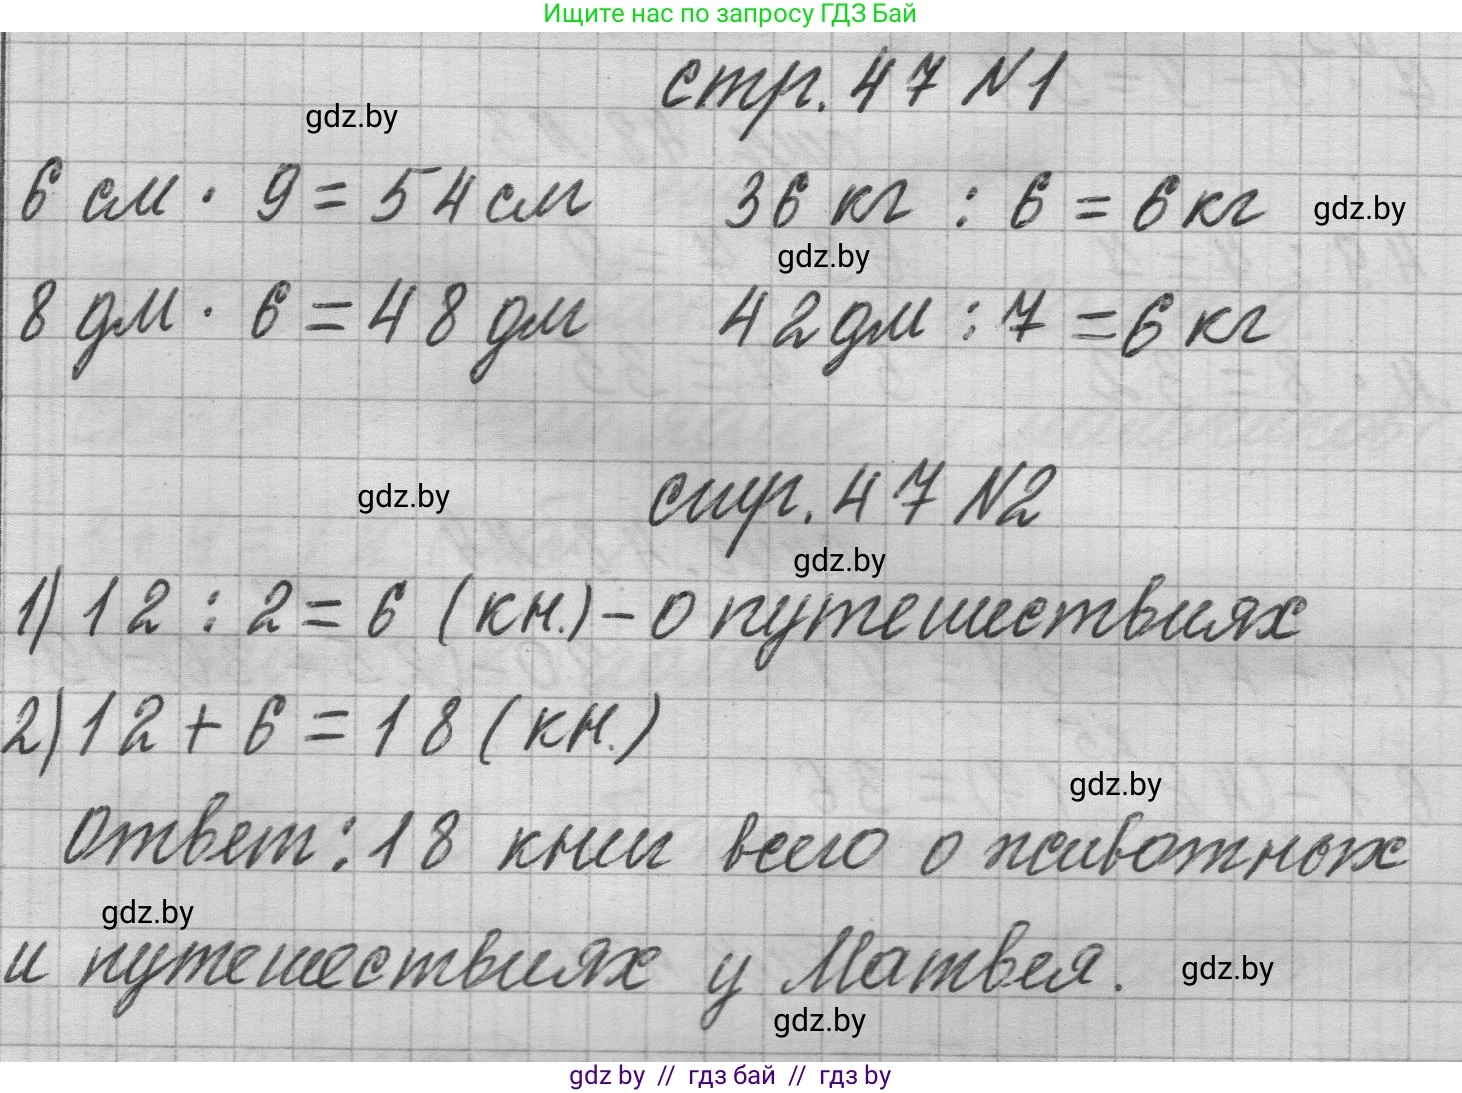 Ищите нас по запросу ГДЗ Бай
стр. 47 N1
gdz.by
6 см · 9 = 54 см 36 кг : 6 = 6 кг gdz.by
gdz.by
8 дм · 6 = 48 дм 42 дм : 7 = 6 кг
стр. 47 N2
gdz.by
gdz.by
1) 12 : 2 = 6 (кн.) – о путешествиях
2) 12 + 6 = 18 (кн.)
gdz.by
Ответ: 18 книг всего о животных
gdz.by
и путешествиях у Матвея.
gdz.by
gdz.by
gdz by // гдз бай // гдз by